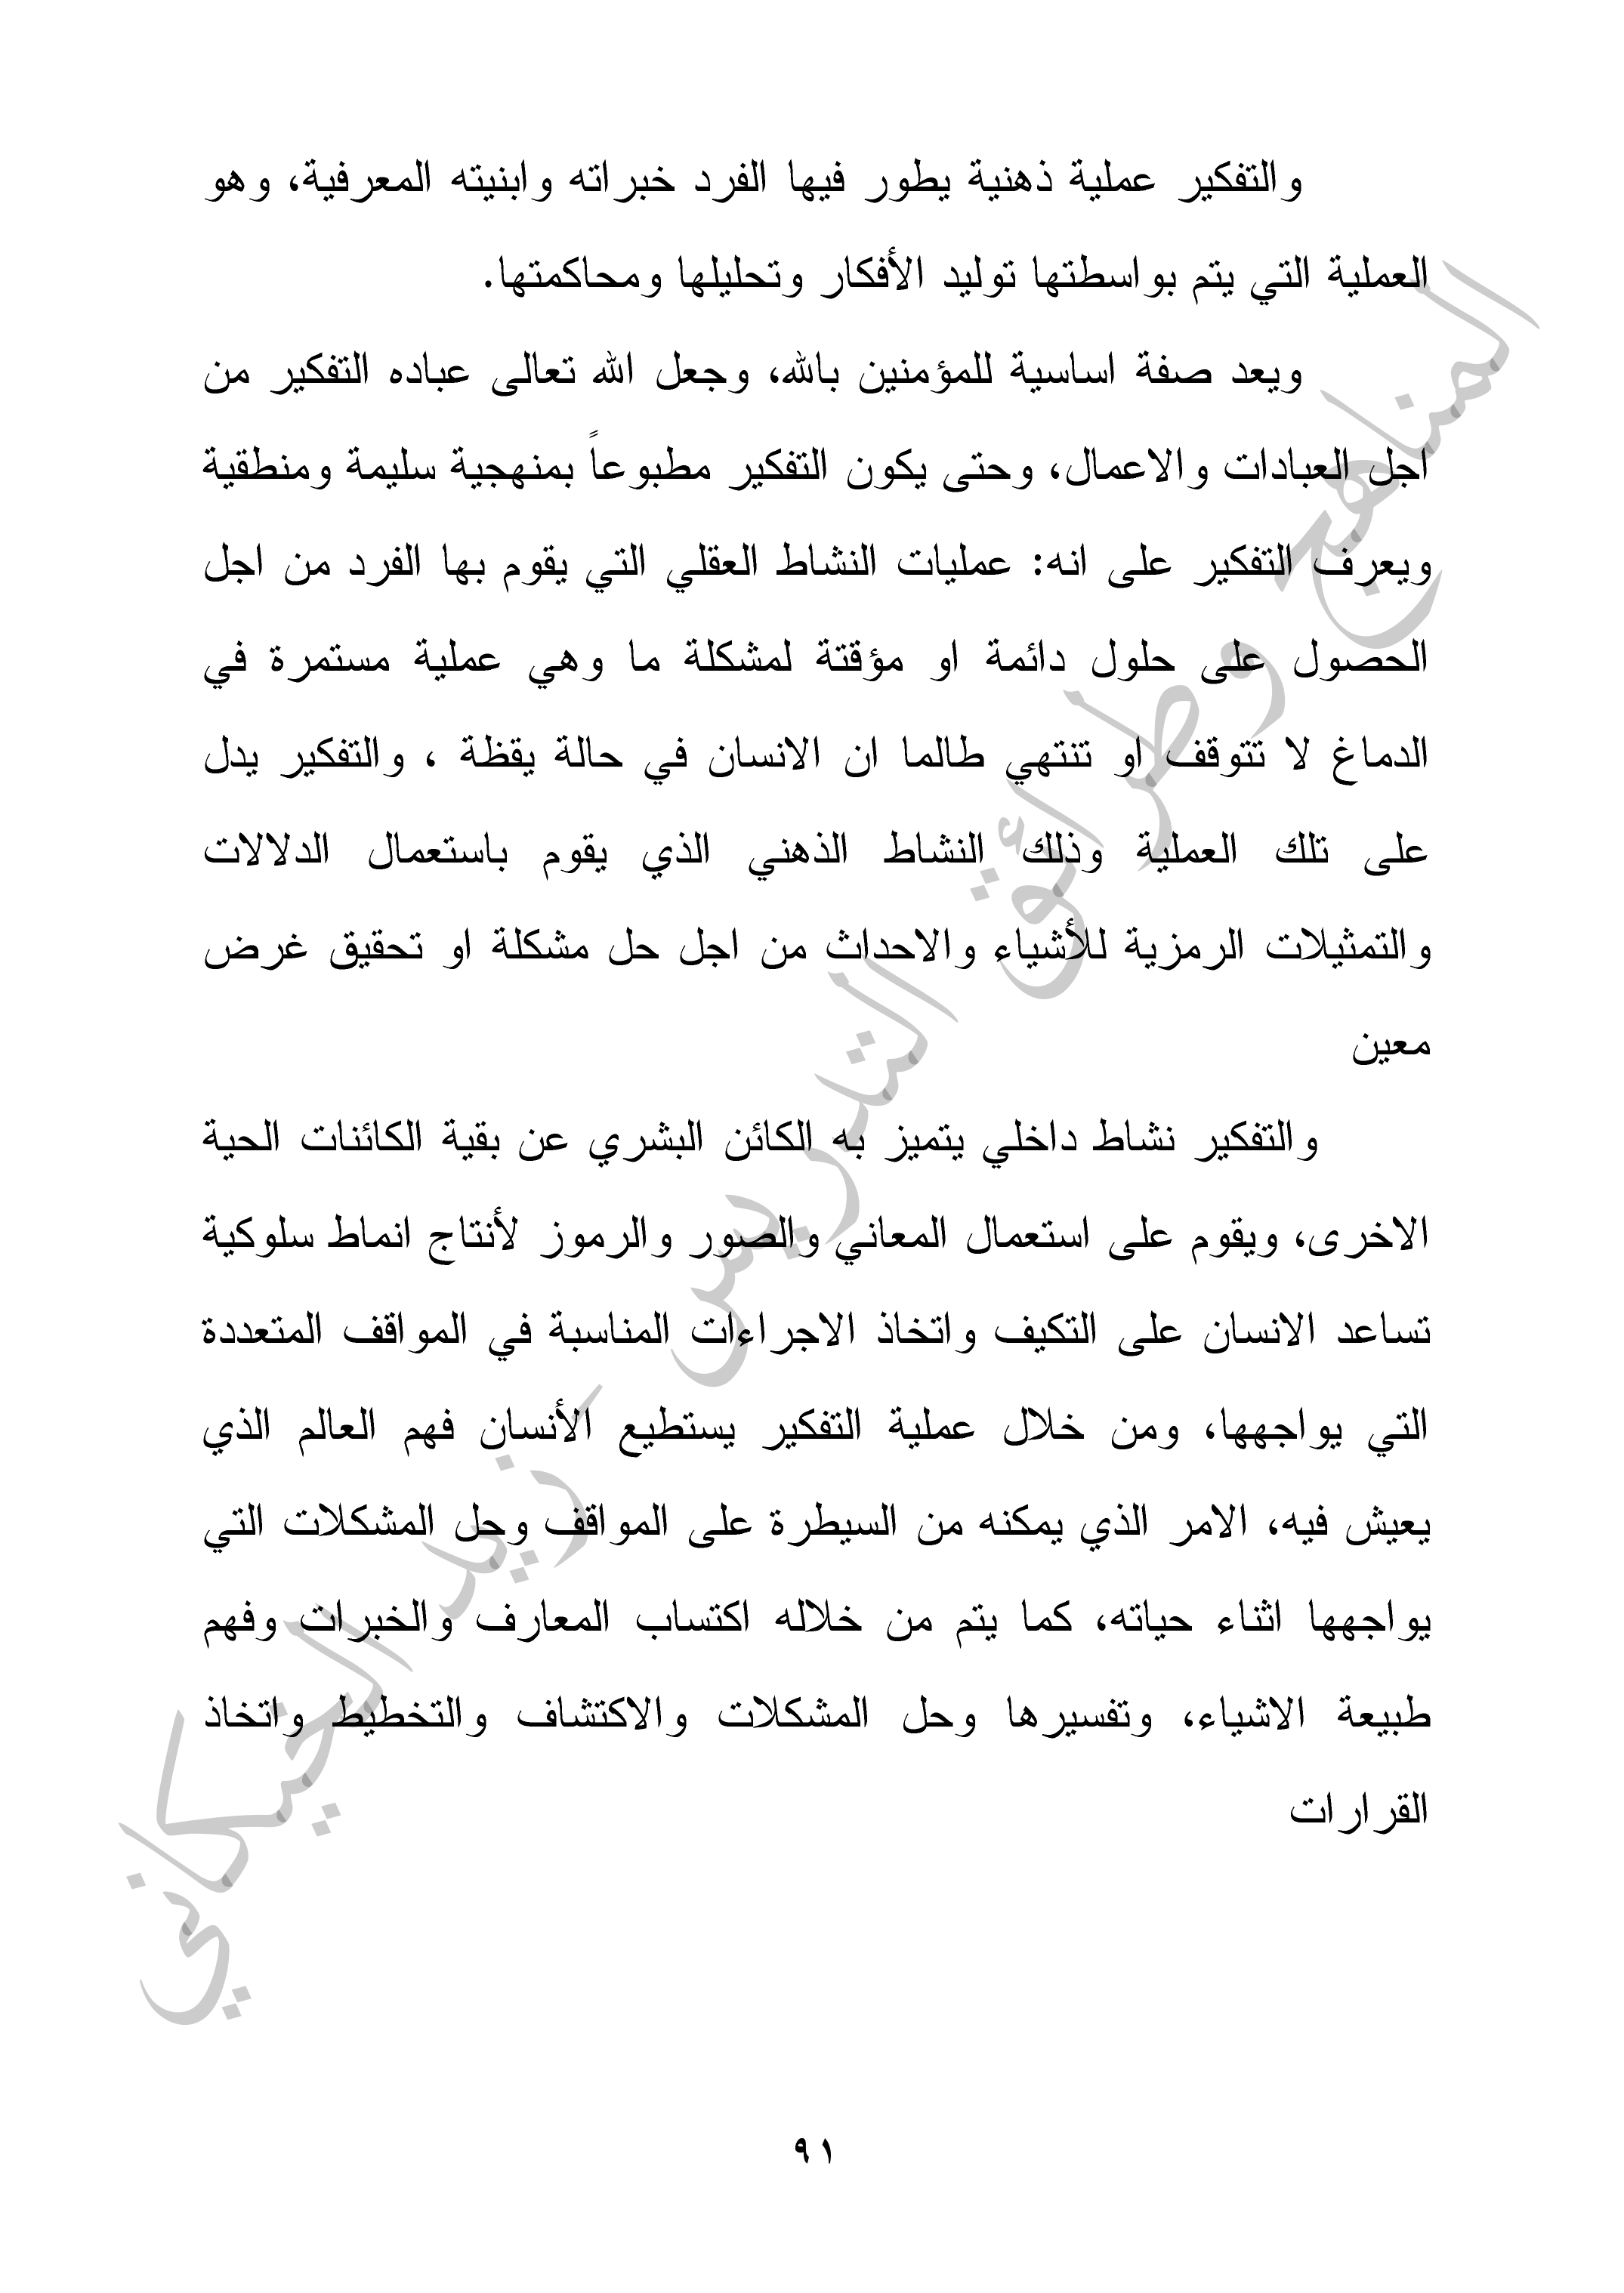 والتفكير عملية ذهنية يطور فيها الفرد خبراته وابنيته المعرفية، وهو
العملية التي يتم بواسطتها توليد الأفكار وتحليلها ومحاكمتها.
ويعد صفة اساسية للمؤمنين بالله، وجعل الله تعالى عباده التفكير من
اجل العبادات والاعمال، وحتى يكون التفكير مطبوعاً بمنهجية سليمة ومنطقية
ويعرف التفكير على انه: عمليات النشاط العقلي التي يقوم بها الفرد من اجل
الحصول على حلول دائمة او مؤقتة لمشكلة ما وهي عملية مستمرة في
الدماغ لا تتوقف او تنتهي طالما ان الانسان في حالة يقظة ، والتفكير يدل
على تلك العملية وذلك النشاط الذهني الذي يقوم باستعمال الدلالات
والتمثيلات الرمزية للأشياء والاحداث من اجل حل مشكلة او تحقيق غرض
معين
والتفكير نشاط داخلي يتميز به الكائن البشري عن بقية الكائنات الحية
الاخرى، ويقوم على استعمال المعاني والصور والرموز لأنتاج انماط سلوكية
تساعد الانسان على التكيف واتخاذ الاجراءات المناسبة في المواقف المتعددة
التي يواجهها، ومن خلال عملية التفكير يستطيع الأنسان فهم العالم الذي
يعيش فيه، الامر الذي يمكنه من السيطرة على المواقف وحل المشكلات التي
يواجهها اثناء حياته، كما يتم من خلاله اكتساب المعارف والخبرات وفهم
طبيعة الاشياء، وتفسيرها وحل المشكلات والاكتشاف والتخطيط واتخاذ
القرارات
المناهج وطرائق التدريس - زيد الخيكاني
٩١